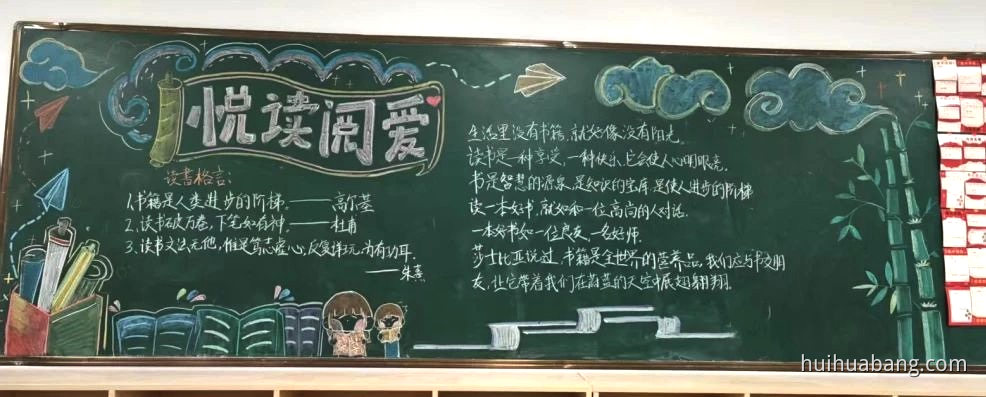 悦读阅爱
读書格言:
1.书籍是人类进步的阶梯.——高尔基
2.读书破万卷,下笔如有神.——杜甫
3、读书之法无他,惟是笃志虚心,反复详玩,为有功耳.
——朱熹
生活里没有书籍,就好像没有阳光.
读书是一种享受,一种快乐,它会使人心明眼亮,
书是智慧的源泉,是知识的宝库,是使人进步的阶梯
读一本好书,就如和一位高尚的人对话.
一本好书如一位良友,一名好师.
莎士比亚说过,书籍是全世界的营养品,我们应与书交朋
友,让它带着我们在蔚蓝的天空中展翅翱翔.
huihuabang.com